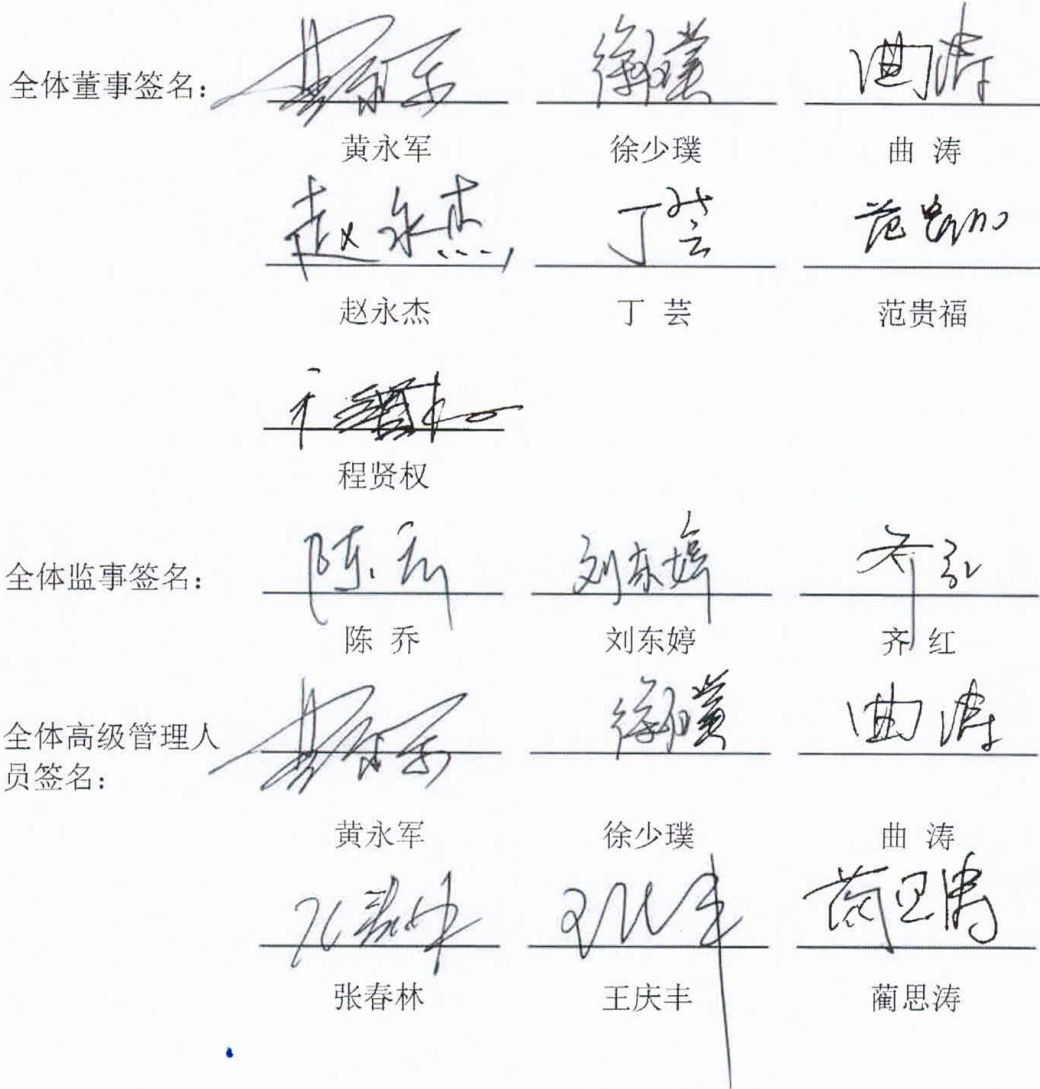 全体董事签名：
黄永军 徐少璞 曲 涛
赵永杰 丁 芸 范贵福
赵永杰 丁 芸 范贵福
程贤权
全体监事签名：
陈 乔 刘东婷 齐 红
全体高级管理人
员签名：
黄永军 徐少璞 曲 涛
张春林 王庆丰 蔺思涛